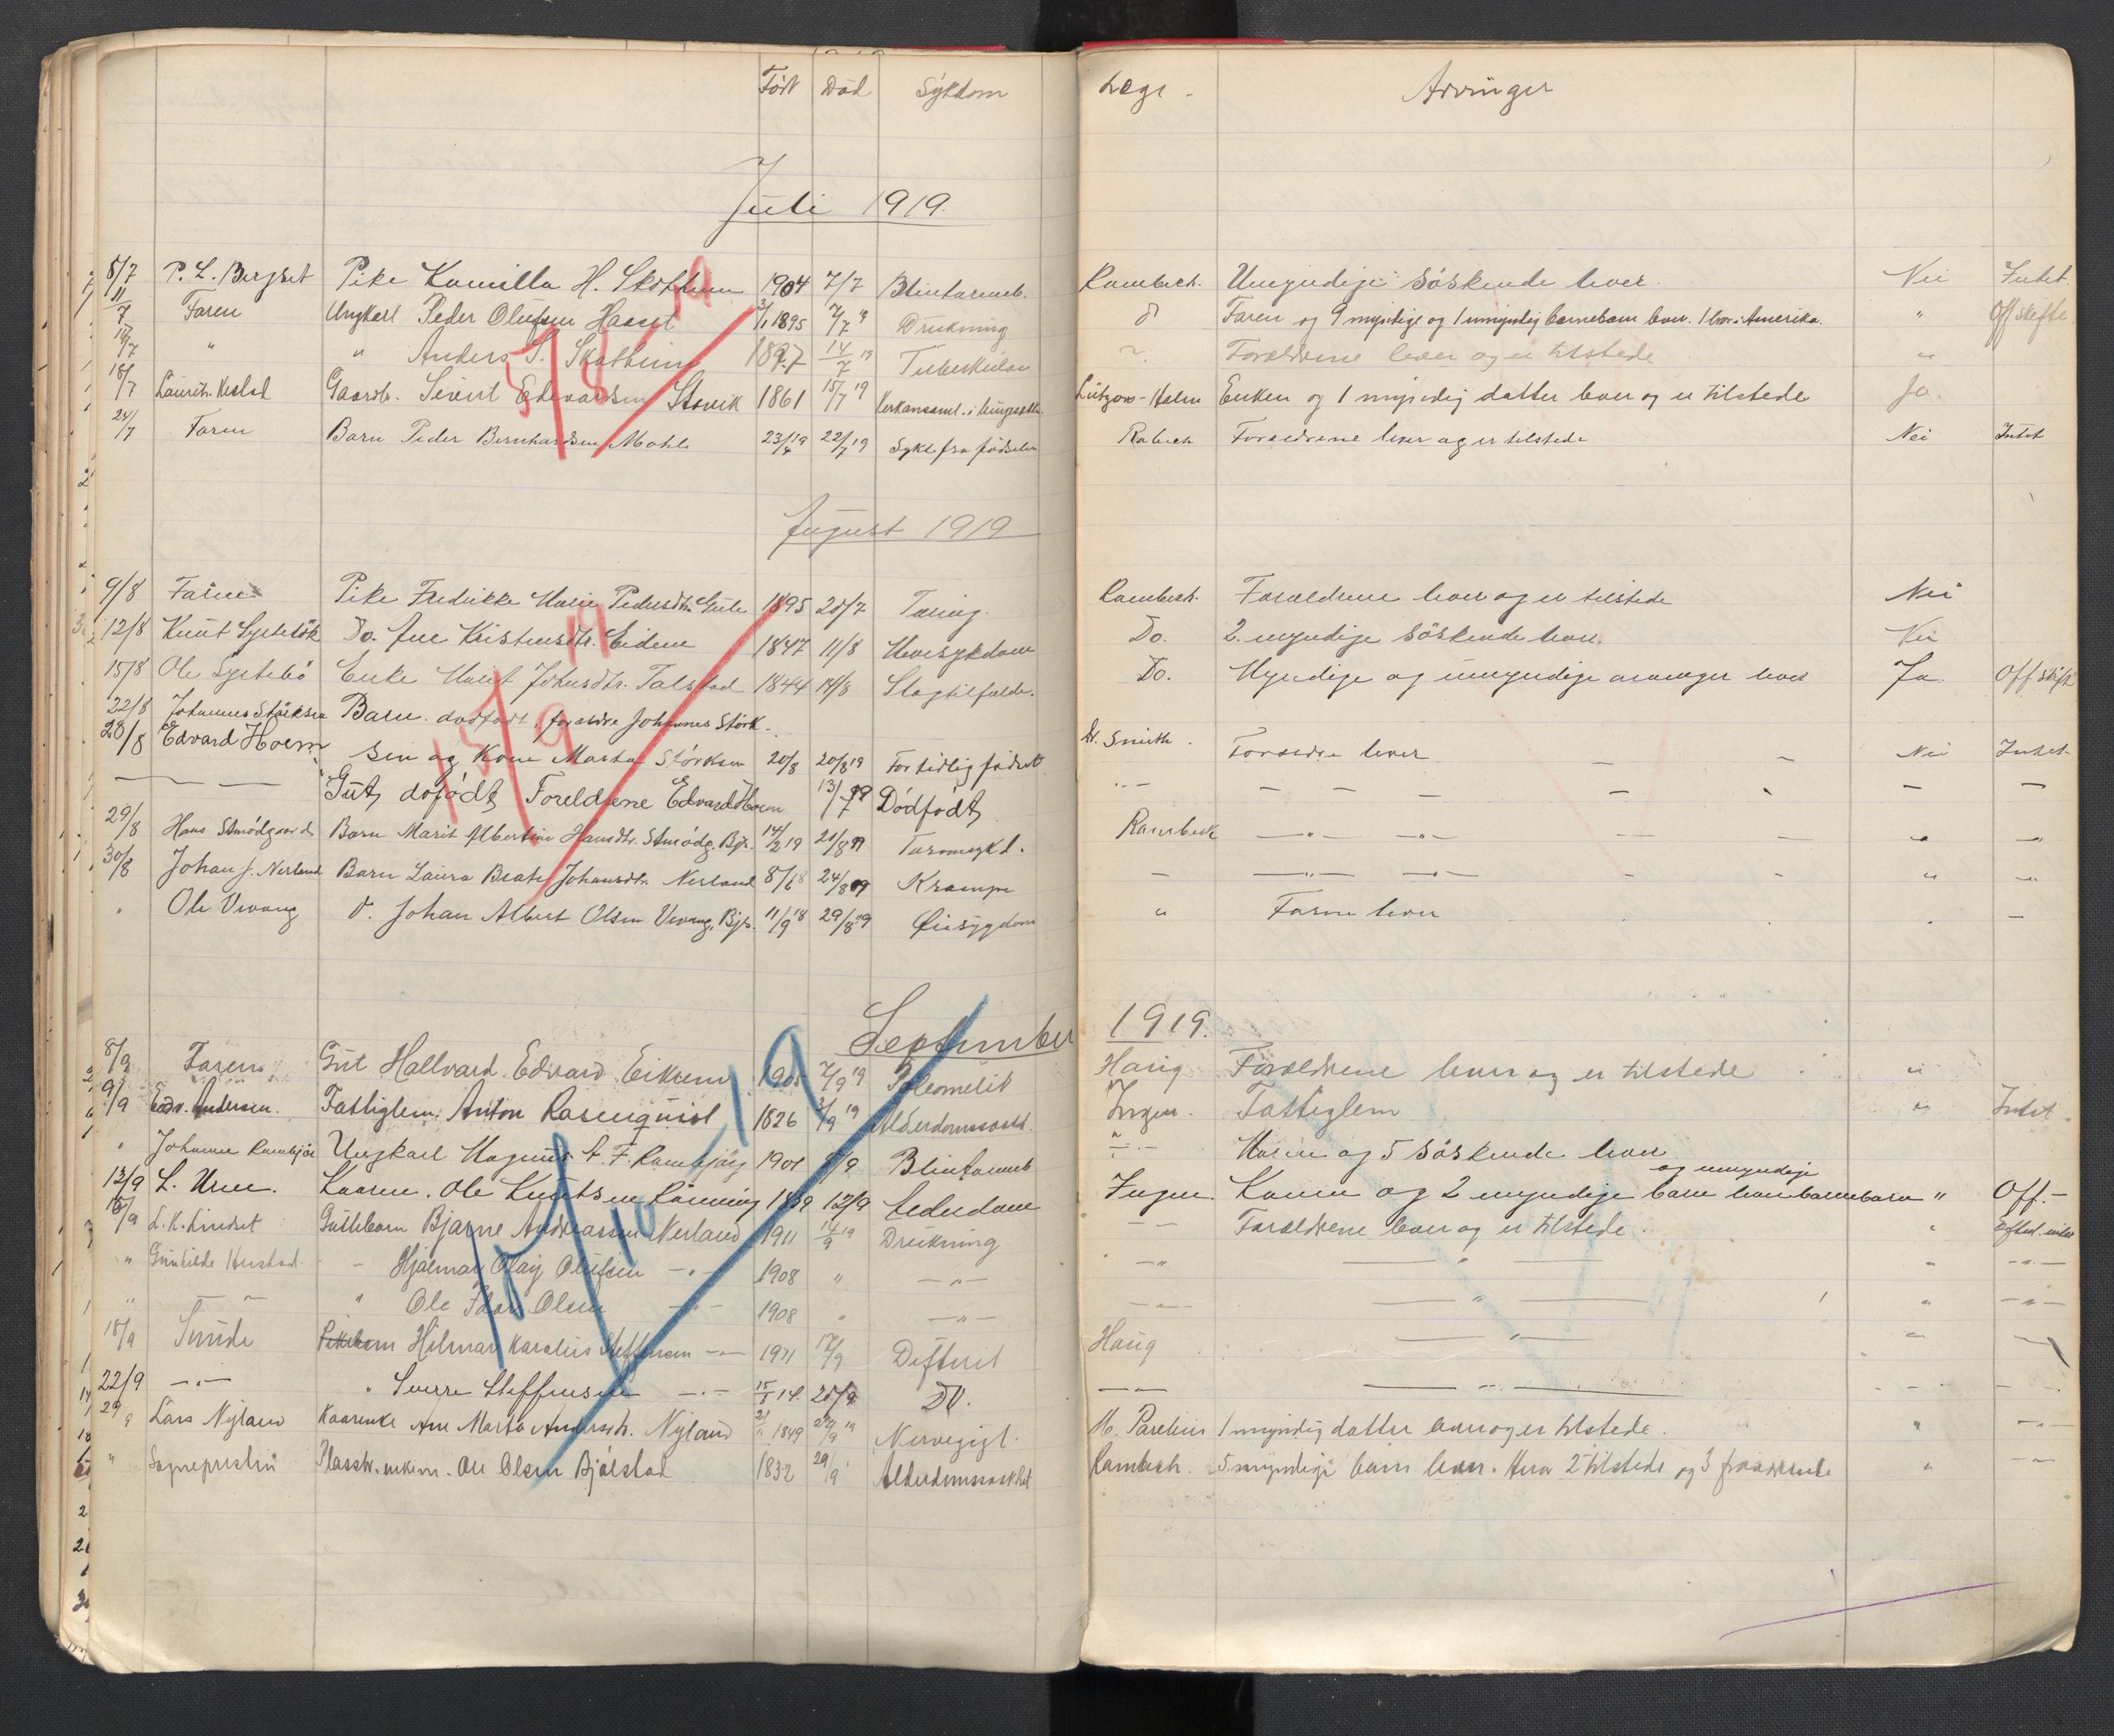 Født Død Sykdom Læge - Arvinger
Juli 1919.
8/7 P. L. Bergset Pike Kamilla H. Skothem 1904 7/7 Blintarmb. Rambech. Umyndige søskende lever. Nei Intet.
11/7 Faren Ungkarl Peder Olufsen Haaset 3/1 1895 7/7 19 Drukning d Faren og 9 myndige og 1 umyndig barnebarn lever. 1 bor i Amerika. " Off skifte
" " Anders S. Skotheim 1897 14/7 19 Tuberkulos Forældrene lever og er tilstede "
18/7 Laurits Gaardbr. Sivert Edvardsen Stavik 1861 15/7 19 Lützow-Holm Enken og 1 myndig datter lever og er tilstede Ja.
24/7 Faren Barn Peder Bernhardsen Male 23/4 19 22/7 19 Sykd. fra fødselen Rabech Forældrene lever og er tilstede Nei Intet
5/8 19
August 1919
9/8 Faren Pike Fredrikke Marie Pedersdtr. 1895 20/7 Tæring. Rambech. Forældrene lever og er tilstede Nei
12/8 Knut Do. Ane Kristensdtr. Eidem 1847 11/8 Do. 2 myndige søskende lever. Nei
15/8 Ole Enke Marit Johnsdtr. Talstad 1844 14/8 Slagtilfælde. Do. Myndige og umyndige arvinger lever Ja. Off skifte
22/8 Johannes Størksen Barn. dødfødt, forædre Johannes Størk-
28/8 Edvard Hoem sen og Kone Marta Størksen 20/8 20/8 19 For tidlig født Dr. Smith. Foræedre lever - - Nei Intet
Gut, døfødt, Foreldrene Edvard Hoem 13/7 19 Dødfødt, - - - - - -
29/8 Hans Barn Marit Albertine Hansdtr. 14/2 19 21/8 19 Tarmsykd. Rambech
30/8 Johan J. Nerland Barn Laura Beate Johansdtr. Nerland 8/6 18 24/8 19 Krampe
" Ole Vevang d. Johan Albert Olsen Vevang, Bjs. 11/9 18 29/8 19 Øiesygdom " Faren lever
15/9 19
September 1919.
8/9 Faren Gut Hallvard Edvard Eikrem 7/9 19 Poleomelit Haug Forældrene lever og er tilstede "
9/9 Edv. Andersen. Fattiglem Anton Rosenquist 1826 3/9 19 Alderdomssvakh. Ingen. Fattiglem " Intet
" Ungkarl Magnus A. F. Rambjør 1901 Blintarmb Moren og 5 søskende lever
13/9 L. Urne. Kaarm. Ole Knutsen Rønning 1839 12/9 Alderdom Ingen. Konen og 2 myndige barn lever og umyndige barnebarn " Off.-
16/9 L. K. Lindset Guttebarn Bjarne Andreassen Nerland 1911 14/9 19 Drukning Forældrene lever og er tilstede.
" Gunhilde Hustad. - Hjalmar Olaij Olufsen -"- 1908 " -"-
" " Ole Idar Olsen 1908 " -"-
18/9 Smide Pikebarn Hilmar Karolius Steffensen -"- 1911 17/9 Difterit Haug
22/9 -"- " Sverre Steffensen -"- 15/5 14 20/9 DO.
29/9 Lars Nyland Kaarenke Ane Marta Andersdtr. Nyland 1849 19 Nervegigt. M. Parelius 1 myndig datter lever og er tilstede.
" Sogneprestin Plasstr. enkem. Ole Olsen Bjølstad 1832 29/9 Alderdomssvakhet Rambech. 5 myndige barn lever. Herav 2 tilstede og 3 fraværende
10/10 19